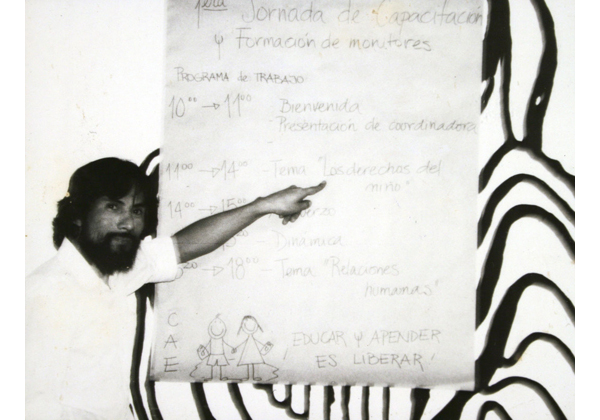 1era Jornada de Capacitación
y Formación de monitores
PROGRAMA de TRABAJO
10⁰⁰ → 11⁰⁰ Bienvenida
Presentación de coordinadora
11⁰⁰ → 14⁰⁰ - Tema "Los derechos del
niño"
14⁰⁰ → 15
- Dinámica
→ 18⁰⁰ - Tema "Relaciones
humanas"
C
A
E
¡EDUCAR Y APENDER
ES LIBERAR!